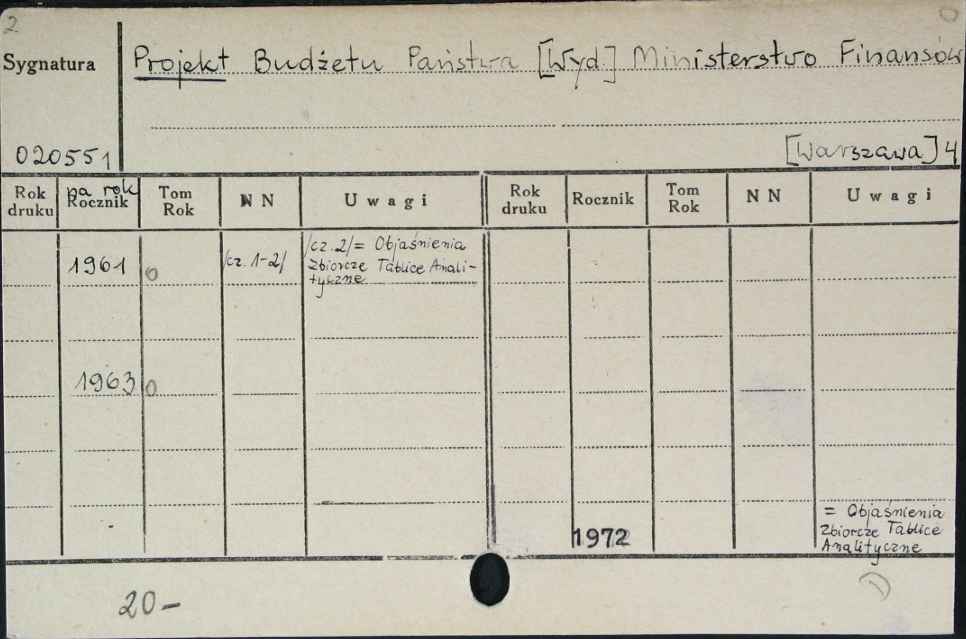 2
Sygnatura
Projekt Budżetu Państwa [Wyd.] Ministerstwo Finansów
020551
[Warszawa] 4
Rok druku
za rok Rocznik
Tom Rok
NN
Uwagi
Rok druku
Rocznik
Tom Rok
NN
Uwagi
1961
0
/cz. 1-2/
/cz. 2/ = Objaśnienia
Zbiorcze Tablice Anali-
tyczne
1963
0
1972
= Objaśnienia
Zbiorcze Tablice
Analityczne
20-